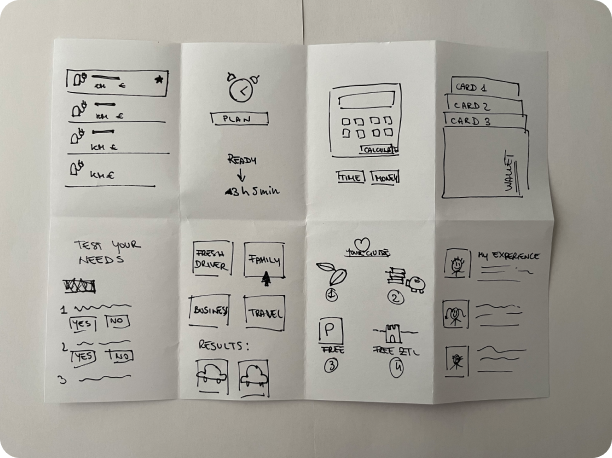 KM €
KM €
KM €
KM €
PLAN
READY
3 h 5 min
CALCULATE
TIME
MONEY
CARD 1
CARD 2
CARD 3
WALLET
TEST YOUR
NEEDS
1
YES
NO
2
YES
NO
3
FRESH
DRIVER
FAMILY
BUSINESS
TRAVEL
RESULTS:
1
2
P
FREE
3
FREE
4
MY EXPERIENCE